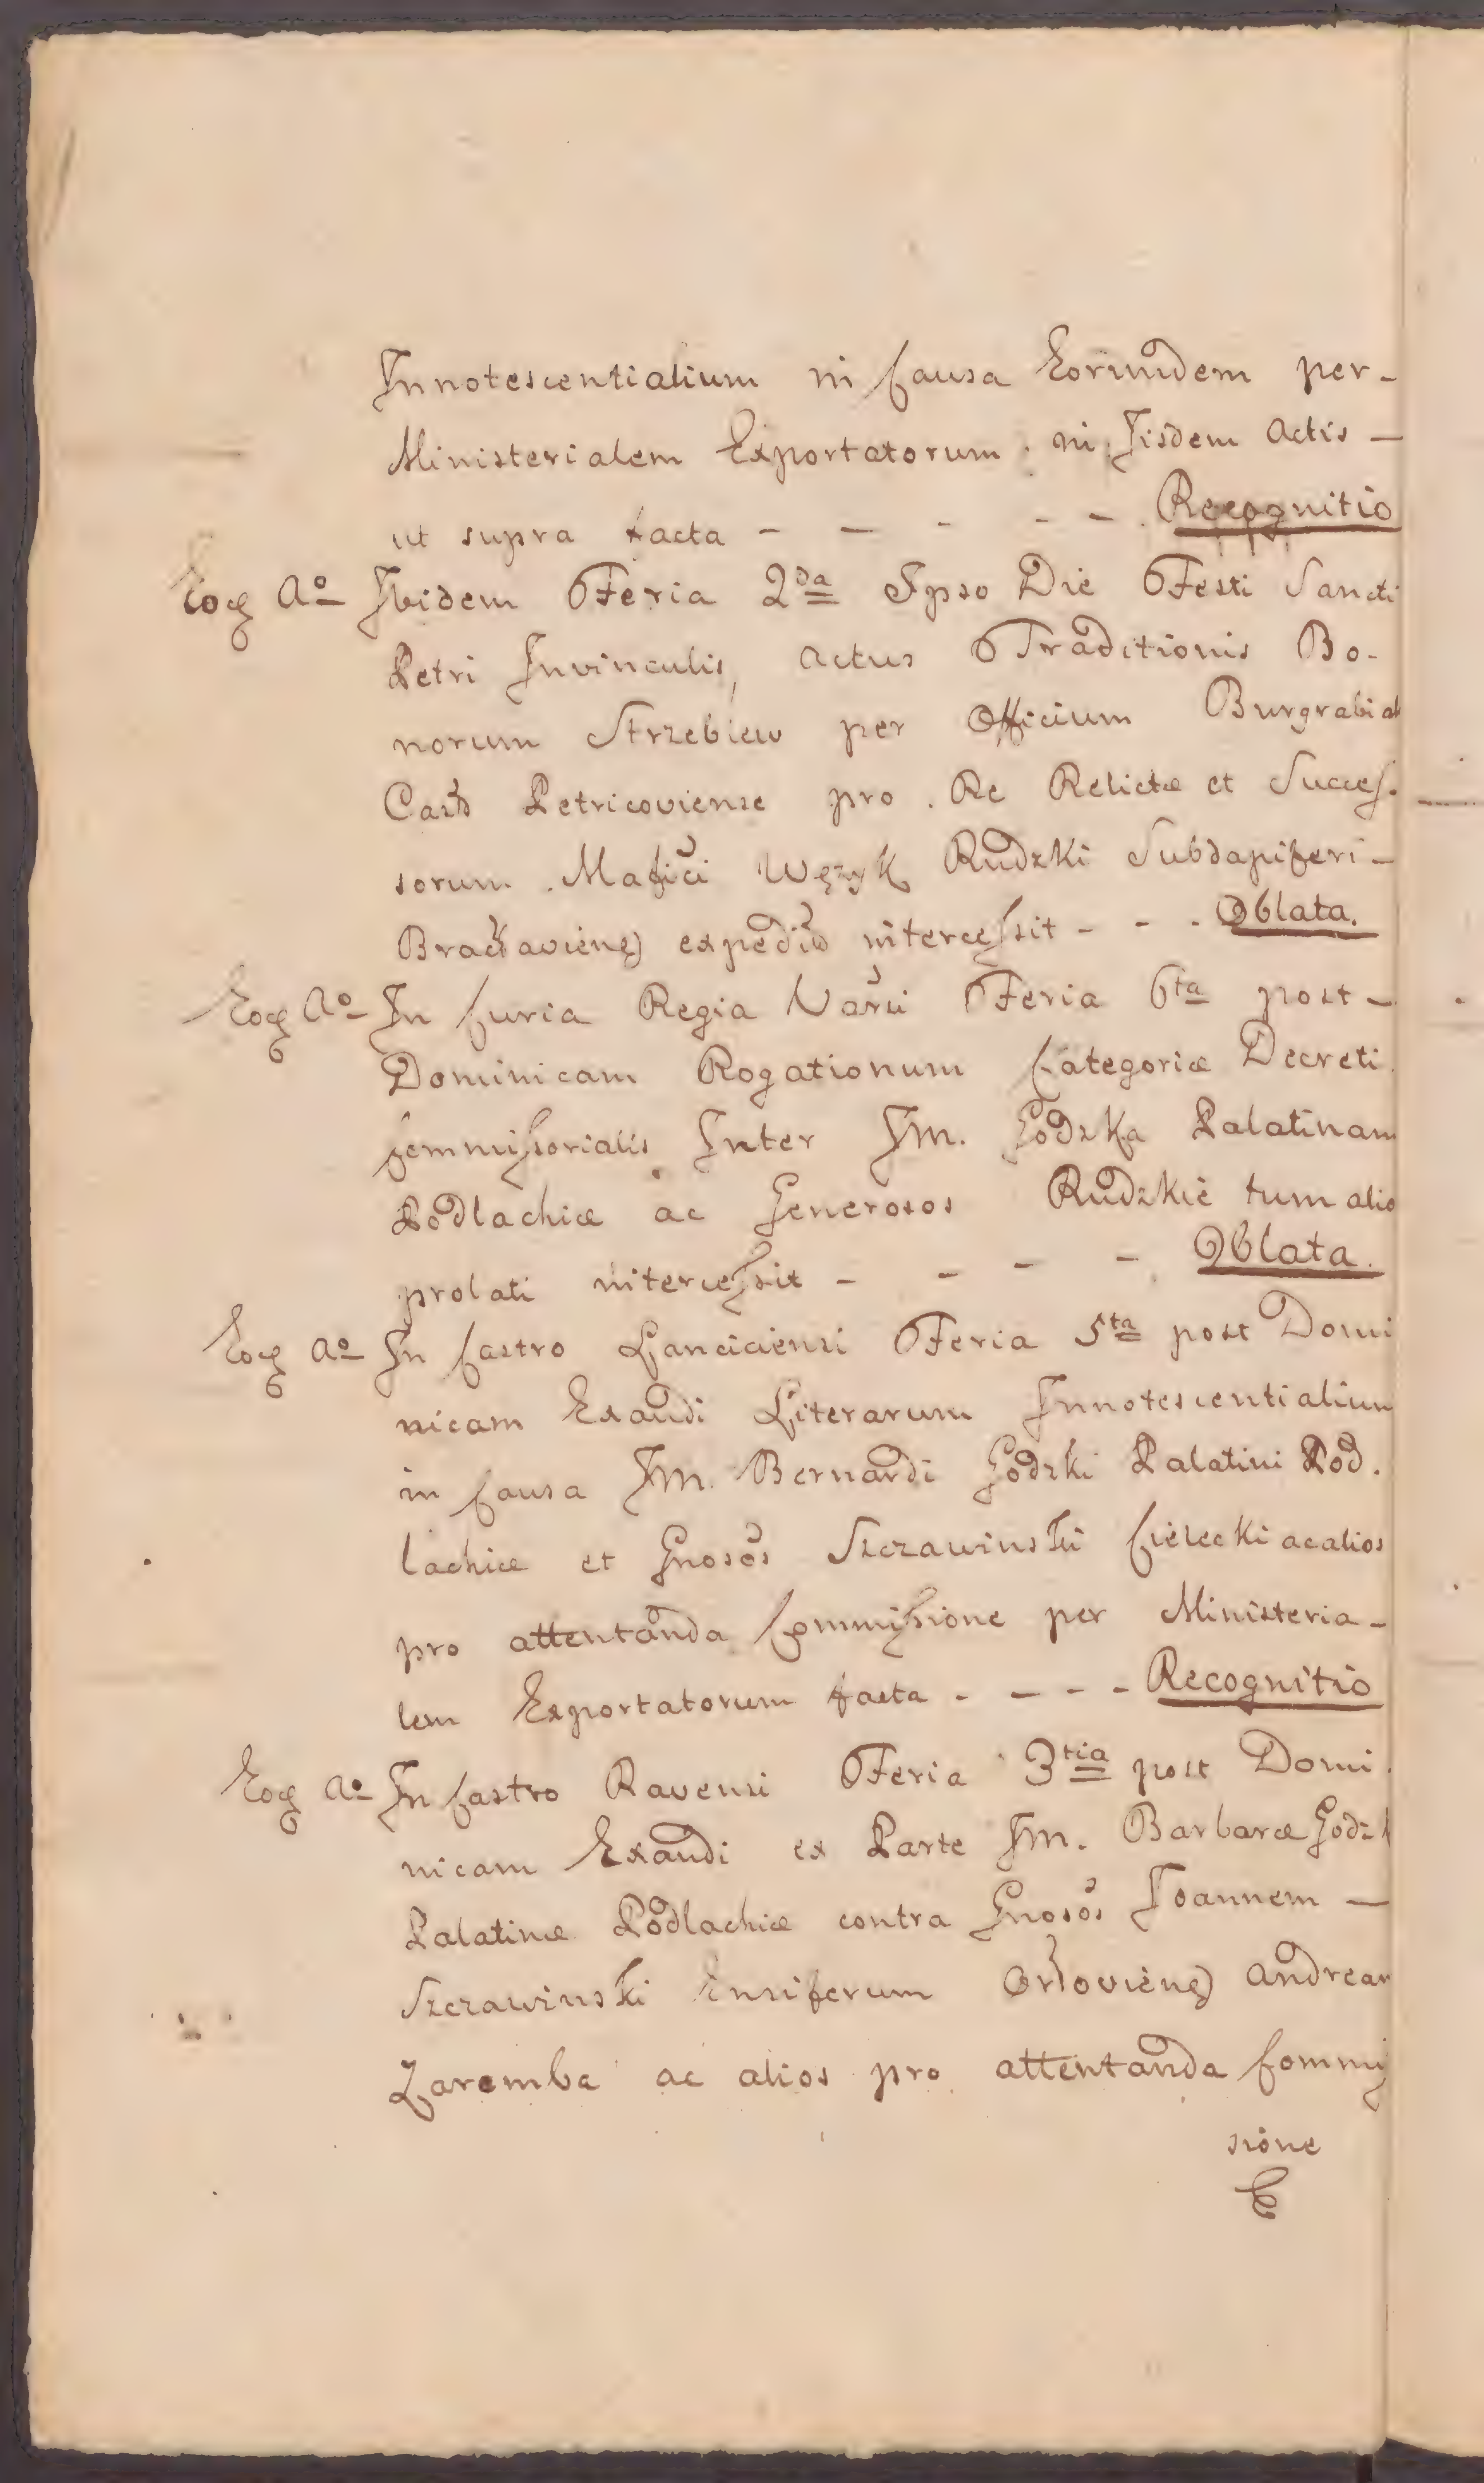 Innotescentialium in Causa Eorumdem per-
Ministerialem Exportatorum in Iisdem Actis -
ut supra facta - - - - - Recognitio
Eoq Ao Ibidem Feria 2da Ipso Die Festi Sancti
Petri Invinculis, Actus Traditionis Bo-
norum Strzebiew per Officium Burgrabial
Castr Petricoviense pro Re Relictæ et Succes-
sorum Mafici Wężyk Rudzki Subdapiferi -
Bracłaviens expedit intercessit - - - Oblata.
Eoq Ao In Curia Regia Varsi Feria 6ta post -
Dominicam Rogationum Categoriæ Decreti
Commissorialis Inter Im. Godzka Palatinam
Podlachiæ ac Generosos Rudzkie tum alio
prolati intercessit - - - - Oblata.
Eoq Ao In Castro Lanciciensi Feria 5ta post Domi
nicam Exaudi Literarum Innotescentialium
in Causa Im. Bernardi Godzki Palatini Pod.
lachiæ et Gnosos Szczawinski Cielecki ac alios
pro attentanda Commissione per Ministeria-
lem Exportatorum facta - - - - Recognitio
Eoq Ao In Castro Ravensi Feria 3tia post Domi.
nicam Exaudi ex Parte Im. Barbaræ Godzk
Palatinæ Podlachiæ contra Gnosos Joannem -
Szczawinski Ensiferum Orłoviens Andream
Zaremba ac alios pro attentanda Commis
sione